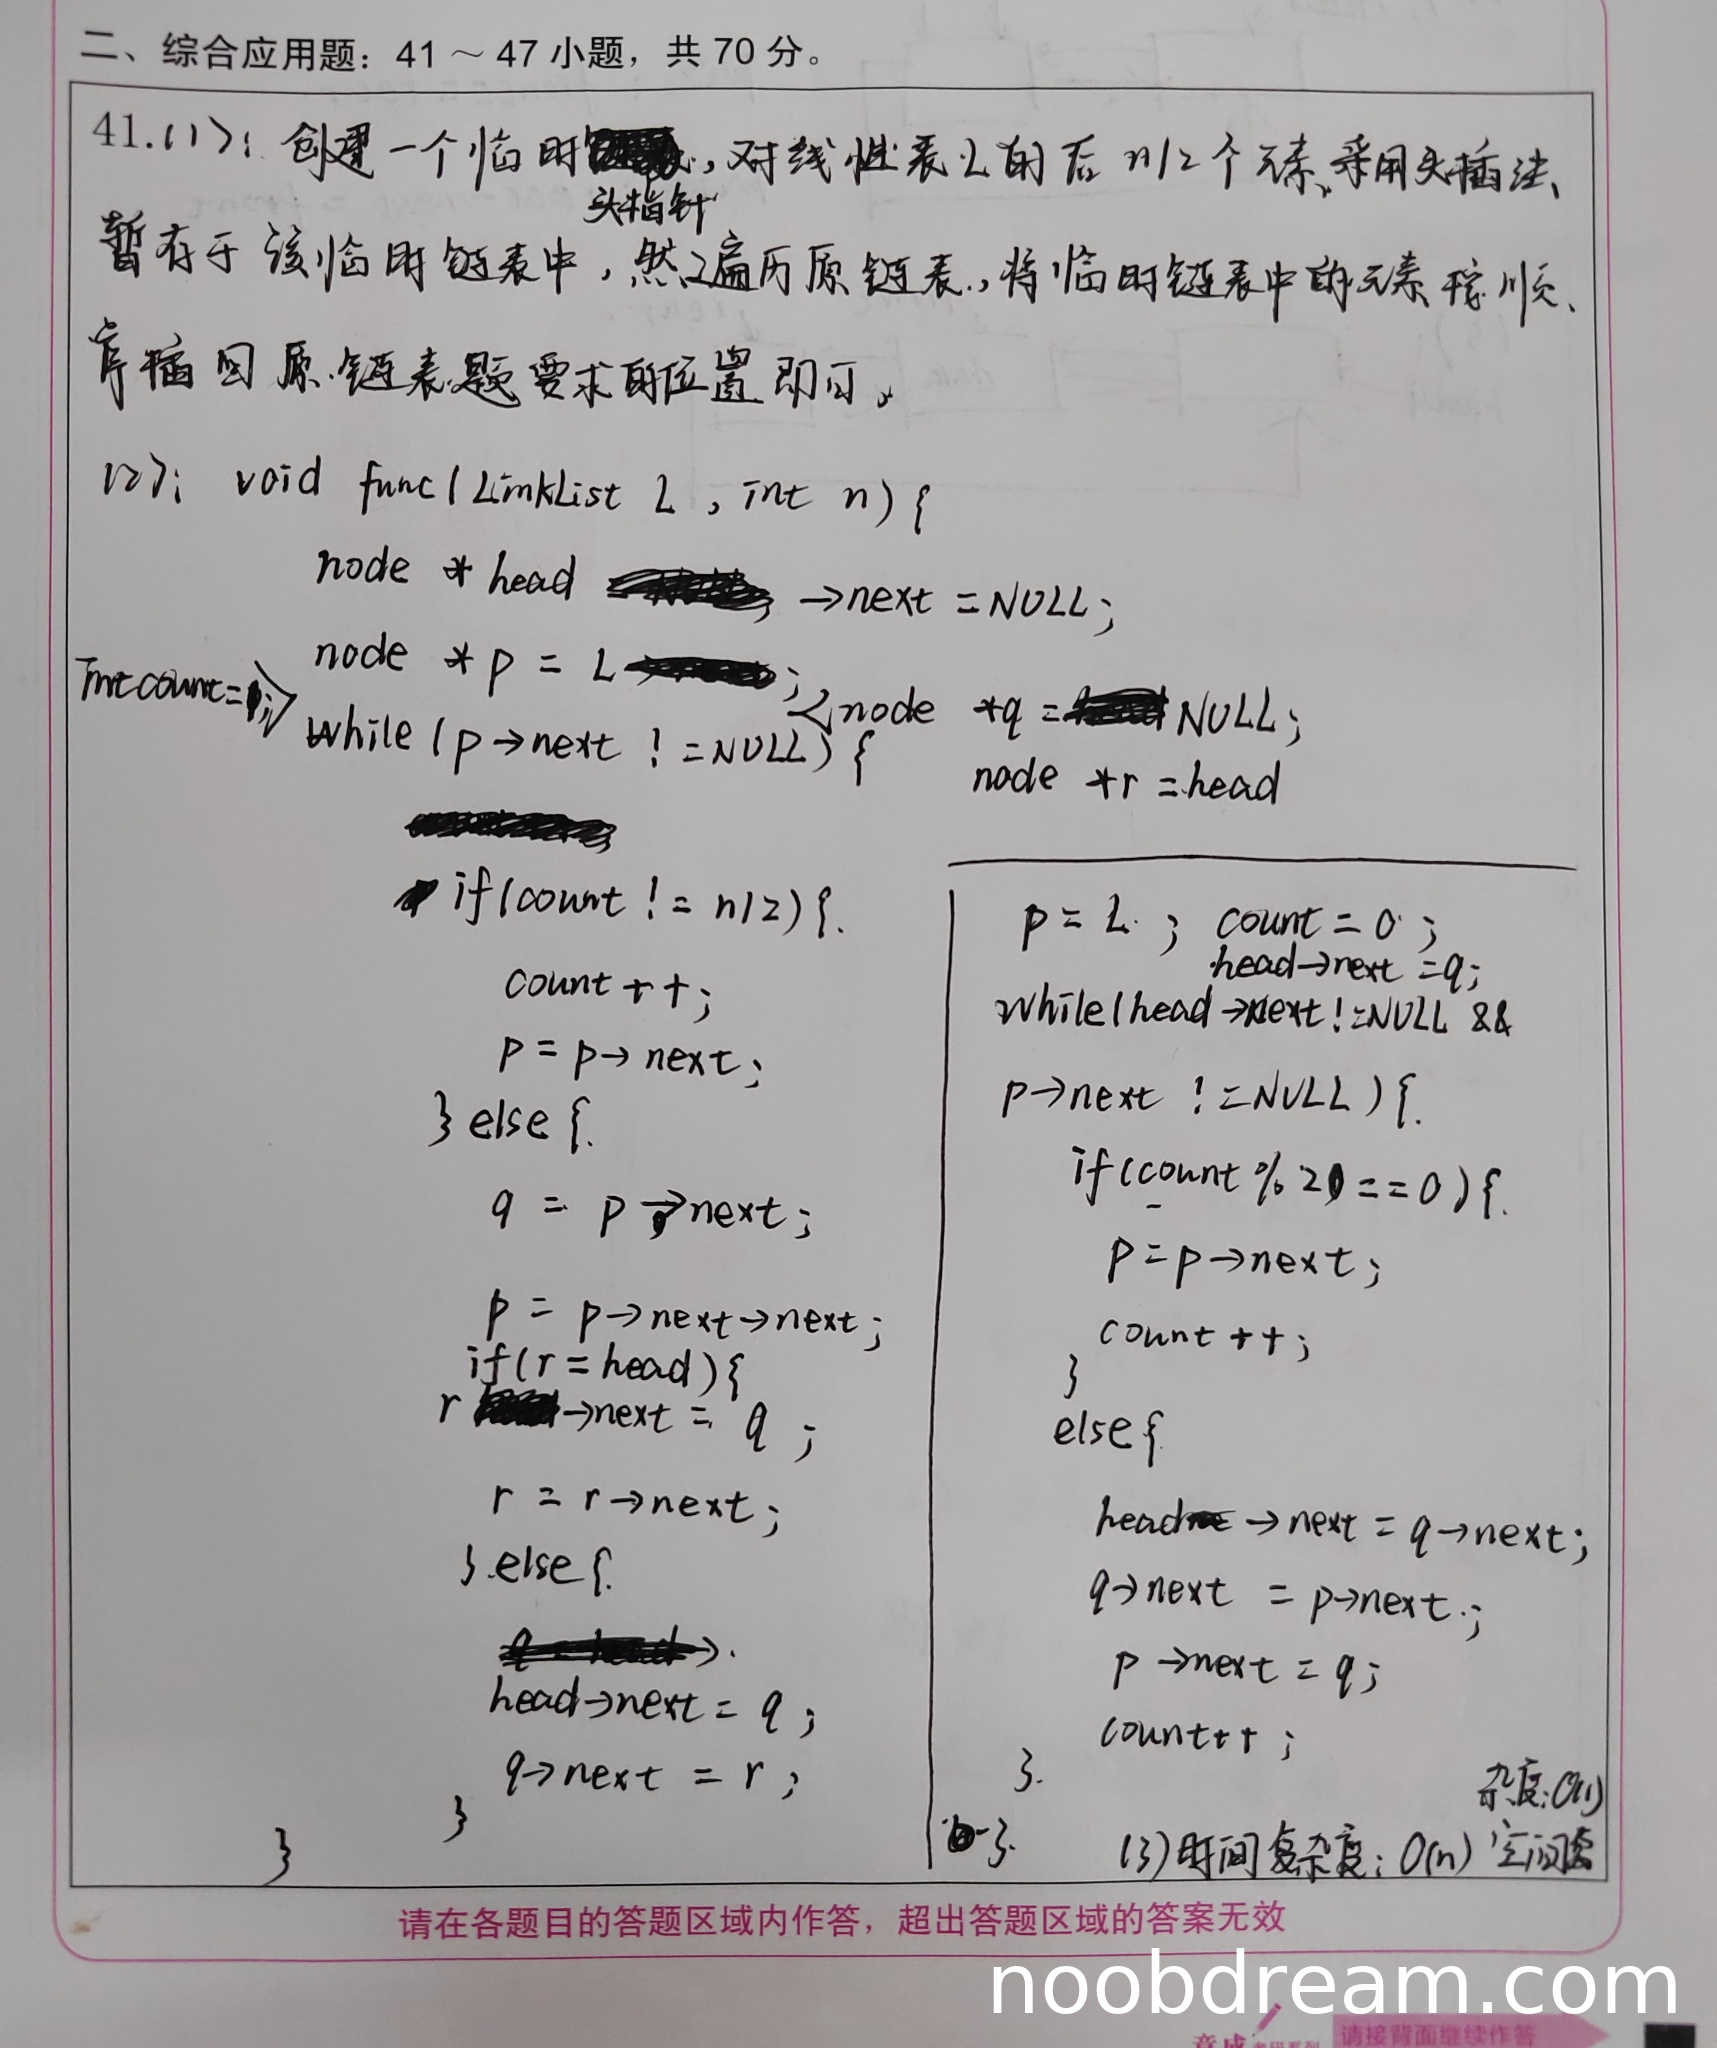 二、综合应用题：41～47 小题，共 70 分。
41.(1)：创建一个临时头指针，对线性表L的后 n/2 个元素采用头插法、
暂存于该临时链表中，然遍历原链表，将临时链表中的元素按顺
序插回原链表题要求的位置即可。
(2)：void func(LinkList L, int n){
node *head →next = NULL;
node *p = L ;
node *q = NULL;
int count=0;
while(p→next != NULL){
node *r = head
if(count != n/2){
count++;
p = p→next;
} else {
q = p→next;
p = p→next→next;
if(r = head){
r →next = q ;
r = r→next;
} else {
head→next = q ;
q→next = r ;
}
}
p = L ; count = 0 ;
head→next = q;
while(head→next != NULL &&
p→next != NULL){
if(count % 2 == 0){
p = p→next;
count++;
}
else{
head →next = q→next;
q→next = p→next;
p→next = q;
count++;
}
}
(3)时间复杂度：O(n) 空间复
杂度：O(1)
请在各题目的答题区域内作答，超出答题区域的答案无效
noobdream.com
请接背面继续作答